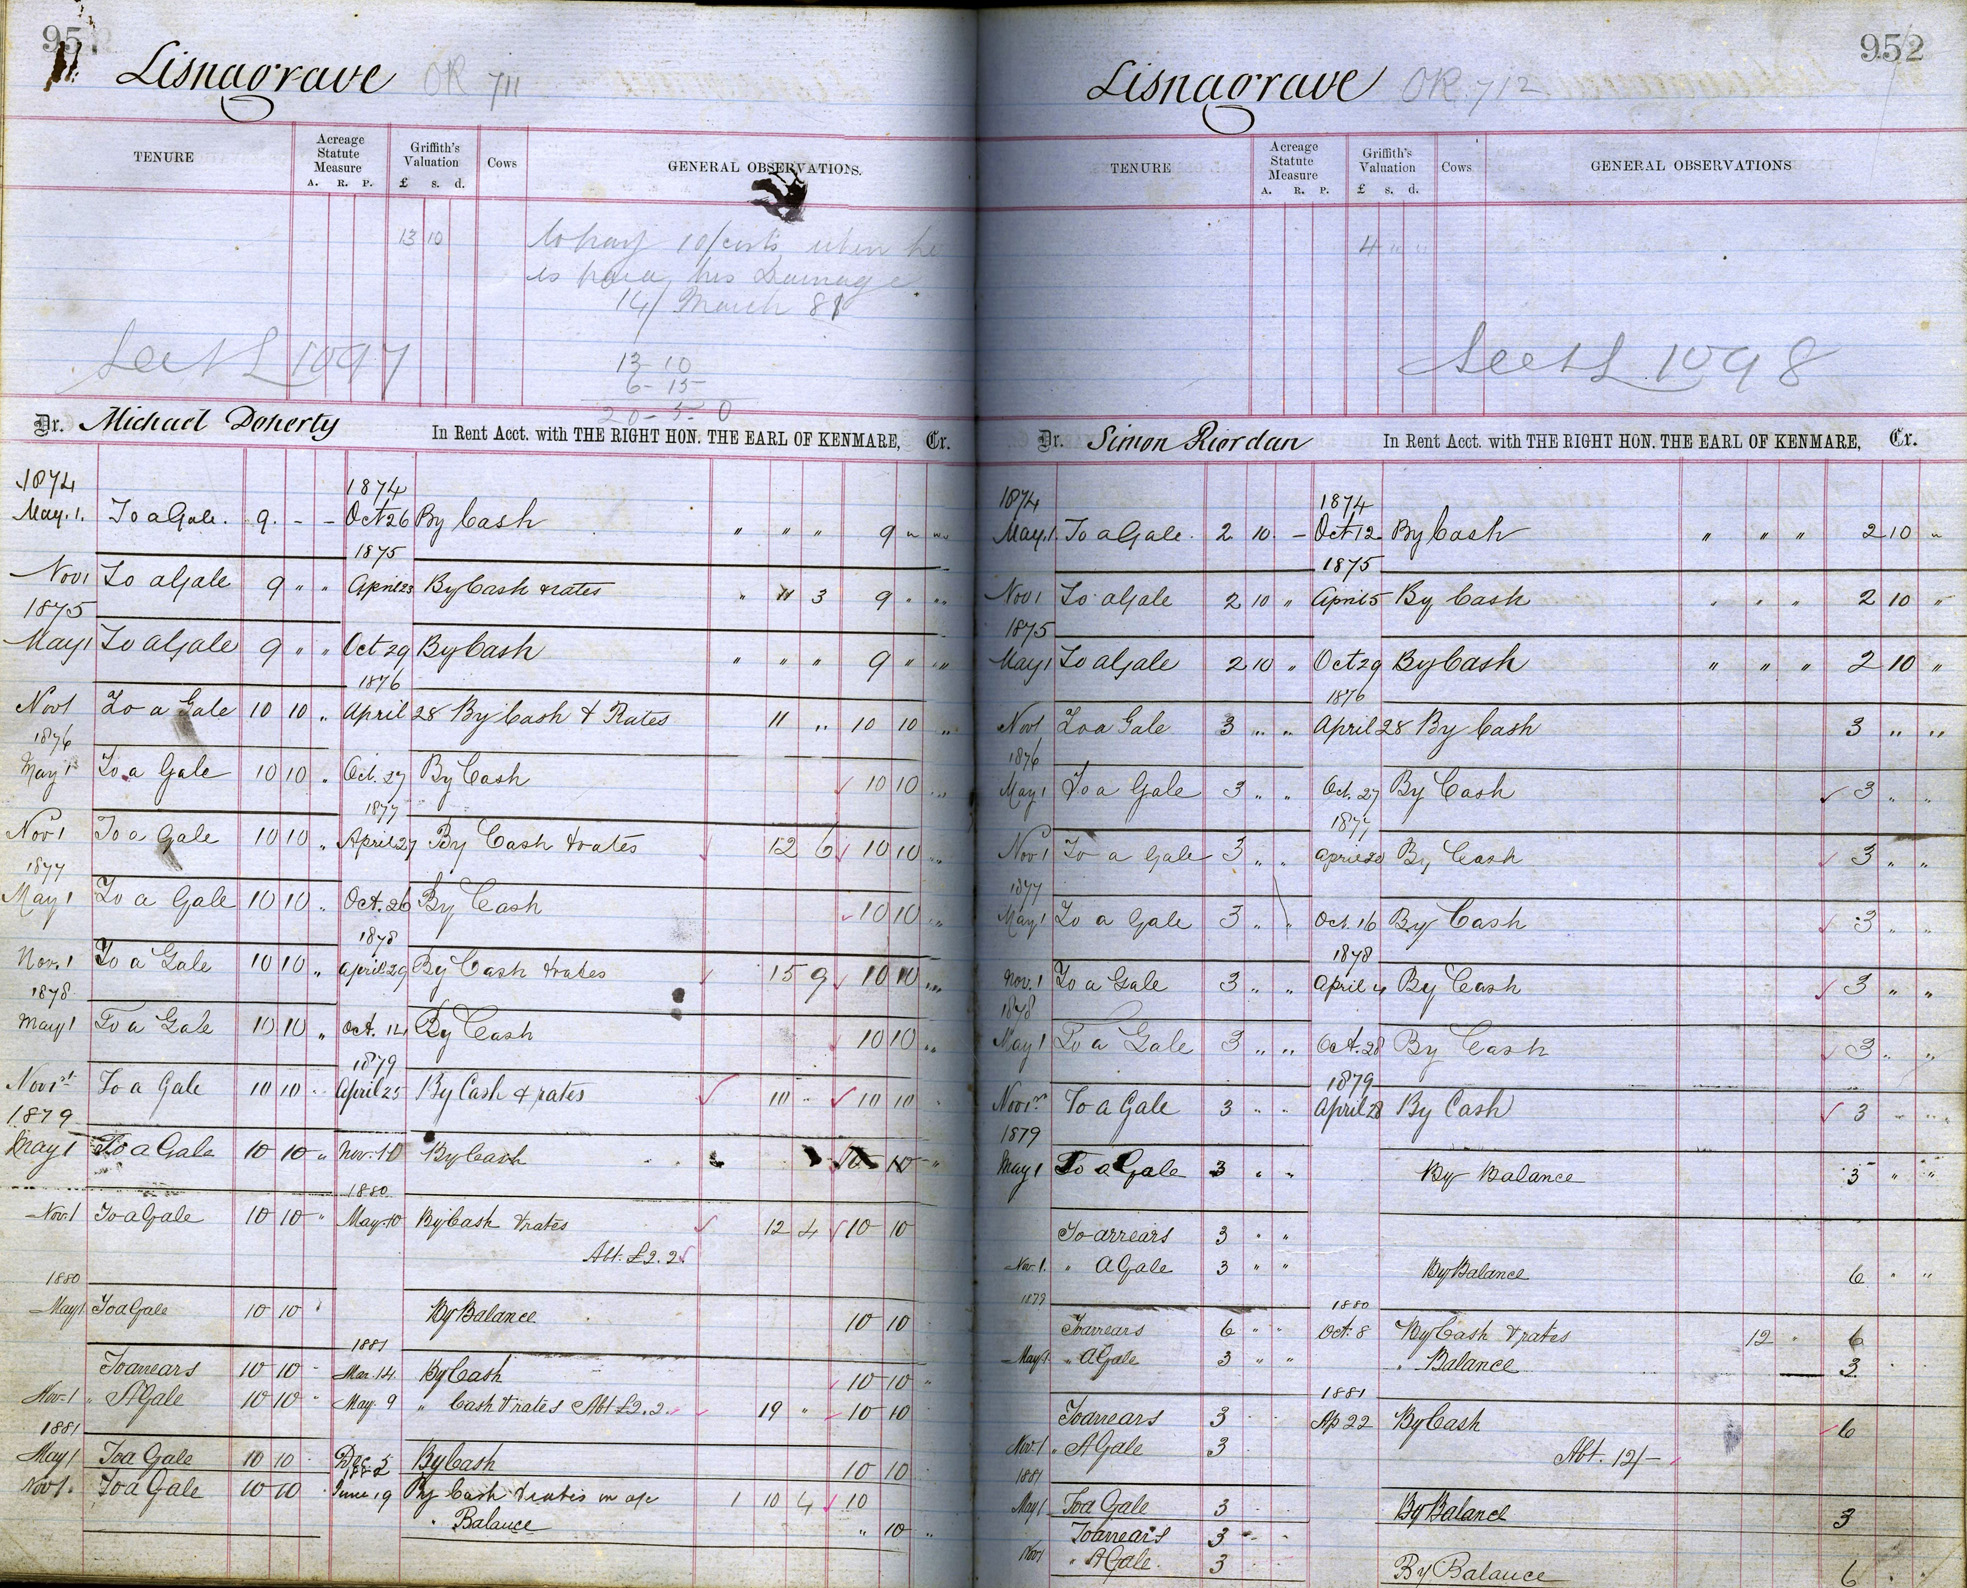 95
Lisnagrave OR 711
TENURE Acreage Statute Measure A. R. P. Griffith's Valuation £ s. d. Cows GENERAL OBSERVATIONS.
13 10 to pay 10/ costs when he
is paid his Damage
14/ March 81
See L 1097
13-10
6-15-
20-5-0
Dr. Michael Doherty In Rent Acct. with THE RIGHT HON. THE EARL OF KENMARE, Cr.
1874 1874
May. 1. To a Gale. 9. - - Oct 26 By Cash " " " 9 " "
1875
Nov 1 To a Gale 9 " " April 23 By Cash & rates " 11 3 9 " "
1875
May 1 To a Gale 9 " " Oct 29 By Cash " " " 9 " "
1876
Nov 1 To a Gale 10 10 " April 28 By Cash & Rates 11 " 10 10 "
1876
May 1 To a Gale 10 10 " Oct. 27 By Cash 10 10 "
1877
Nov 1 To a Gale 10 10 " April 27 By Cash & rates 12 6 10 10 "
1877
May 1 To a Gale 10 10 " Oct. 26 By Cash 10 10 "
1878
Nov. 1 To a Gale 10 10 " April 29 By Cash & rates 15 9 10 10 "
1878
May 1 To a Gale 10 10 " Oct. 14 By Cash 10 10 "
1879
Nov 1st To a Gale 10 10 " April 25 By Cash & rates 10 " 10 10 "
1879
May 1 To a Gale 10 10 " Nov. 10 By Cash 10 10 "
1880
Nov. 1 To a Gale 10 10 " May 10 By Cash & rates 12 4 10 10
Abt. £2.2
1880
May 1 To a Gale 10 10 " By Balance 10 10
1881
To arrears 10 10 " Mar. 14 By Cash 10 10 "
Nov. 1 " A Gale 10 10 " May. 9 " Cash & rates Abt £2.2. 19 " 10 10
1881
May 1 To a Gale 10 10 Dec 5 By Cash 10 10
1882
Nov 1. To a Gale 10 10 June 19 By Cash & rates on a/c 1 10 4 10
" Balance " 10 "
952
Lisnagrave OR 712
TENURE Acreage Statute Measure A. R. P. Griffith's Valuation £ s. d. Cows GENERAL OBSERVATIONS
4 " "
See L 1098
Dr. Simon Riordan In Rent Acct. with THE RIGHT HON. THE EARL OF KENMARE, Cr.
1874 1874
May. 1 To a Gale. 2 10. - Oct 12 By Cash " " " 2 10 "
1875
Nov 1 To a Gale 2 10 " April 5 By Cash " " " 2 10 "
1875
May 1 To a Gale 2 10 " Oct 29 By Cash " " " 2 10 "
1876
Nov 1 To a Gale 3 " " April 28 By Cash 3 " "
1876
May 1 To a Gale 3 " " Oct. 27 By Cash 3 " "
1877
Nov 1 To a Gale 3 " " April 20 By Cash 3 " "
1877
May 1 To a Gale 3 " " Oct. 16 By Cash 3 " "
1878
Nov. 1 To a Gale 3 " " April 4 By Cash 3 " "
1878
May 1 To a Gale 3 " " Oct. 28 By Cash 3 " "
1879
Nov 1st To a Gale 3 " " April 28 By Cash 3 " "
1879
May 1 To a Gale 3 " " By Balance 3 " "
To arrears 3 " "
Nov. 1. " A Gale 3 " " By Balance 6 " "
1879 1880
To arrears 6 " " Oct. 8 By Cash & rates 12 " 6
May 1 " A Gale 3 " " " Balance 3
1881
To arrears 3 Ap 22 By Cash 6
Nov. 1 " A Gale 3 Abt. 12/-
1881
May 1 To a Gale 3 By Balance 3
To arrears 3
Nov 1 " A Gale. 3 By Balance 6